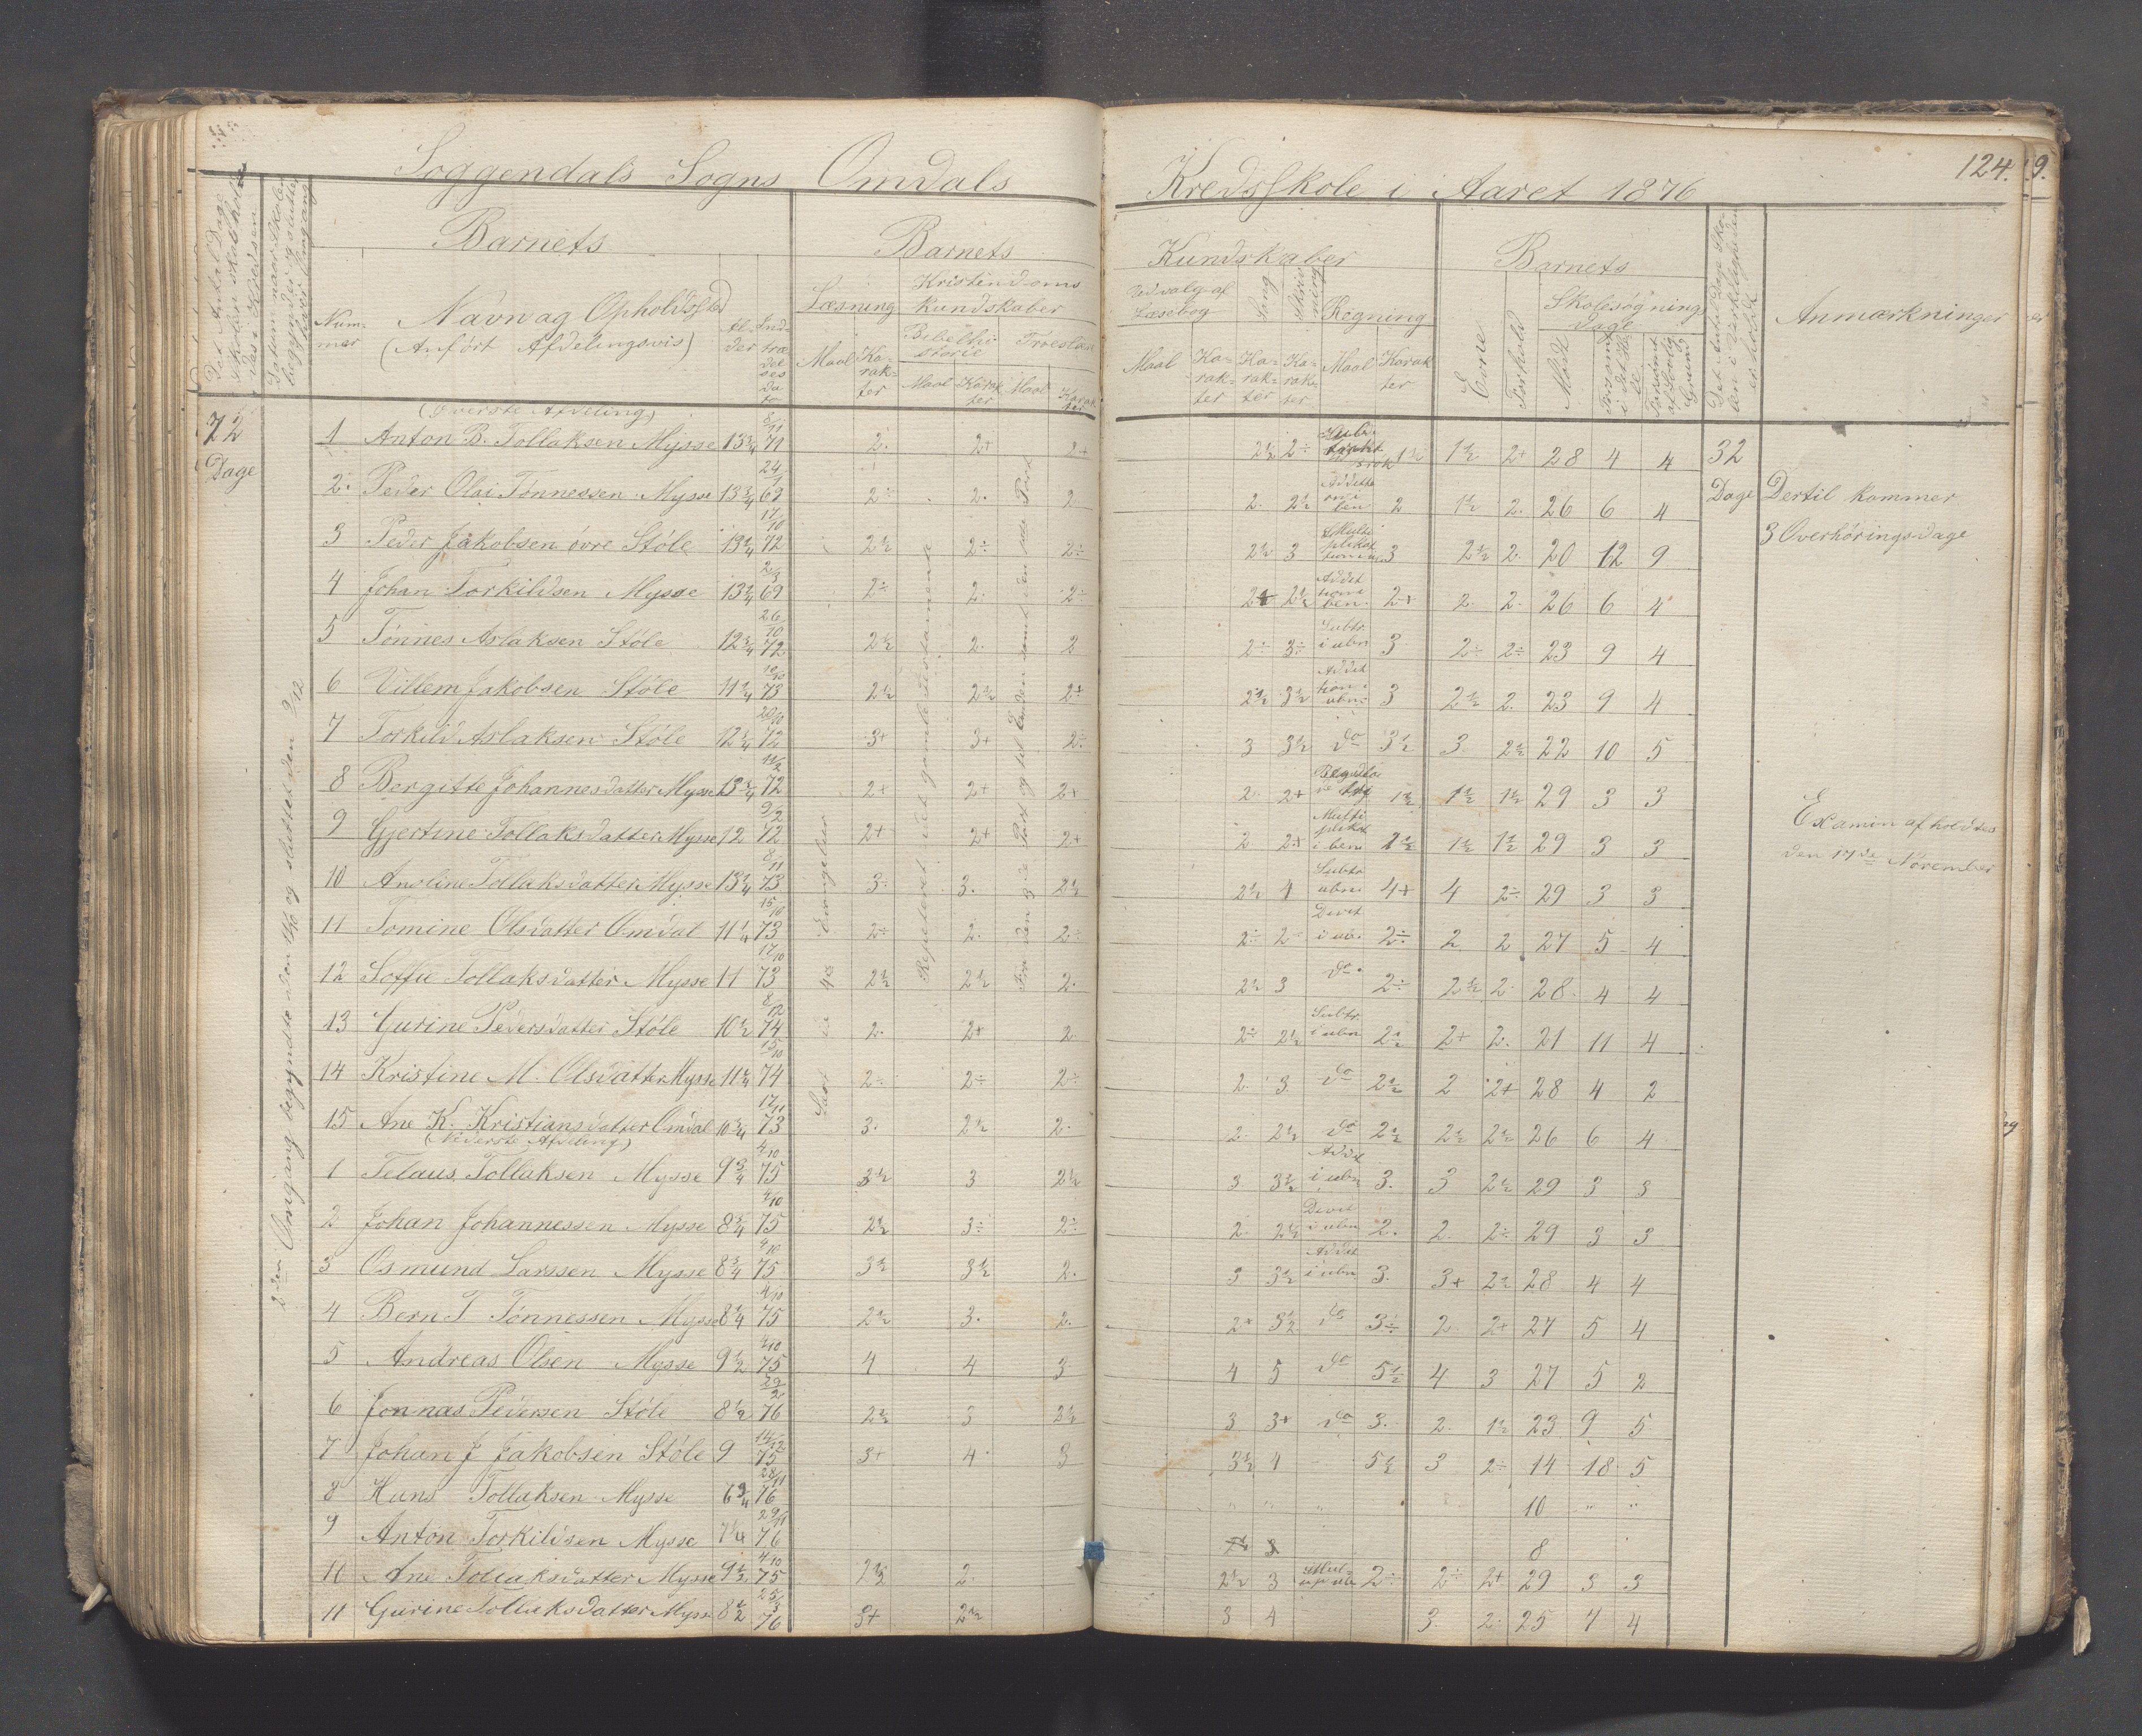 Soggendals Sogns Omdals Kredsskole i Aaret 1876
124.
9.
Barnets
Barnets
Kundskaber
Barnets
Anmærkninger
Num-
mer
Navn og Opholdssted
(Anført Afdelingsvis)
Al-
der
Ind-
træ
del
ses
Da
to
Læsning
Kristendoms
kundskaber
Bibelhi-
storie
Troeslære
Maal
Ka-
rak-
ter
Maal
Karak
ter
Maal
Karak
ter
Udvalg af
Læsebog
Sang
Skriv
ning
Regning
Maal
Ka-
rak-
ter
Ka-
rak-
ter
Ka-
rak-
ter
Maal
Karak
ter
Evne
Forhold
Skolesøgnings
dage
Mødt
Forsømt
i det Hele
Forsømt
af lovlig
Grund
Det Antal Dage Sko-
len i Virkeligheden
er holdt
Det Antal Dage
Skolen skal holdes
i Kredsen
Datum naar Skolen
begynder og slutter
hver Omgang
72
Dage
2den Omgang begyndte den 11/10 og sluttet den 9/12
(Øverste Afdeling)
1 Anton B. Tollaksen Mysse 13 3/4 8/11 71 2. 2+ 2+ 2½ 2÷ 1½ 1½ 2+ 28 4 4 32
2. Peder Olai Tønnessen Mysse 13 3/4 24/1 69 2÷ 2. 2 2. 2½ 2 1½ 2. 26 6 4 Dage Dertil kommer
3 Peder Jakobsen øvre Støle 13 1/4 17/10 72 2½ 2÷ 2÷ 2½ 3 3 2½ 2. 20 12 9 3 Overhøringsdage
4 Johan Torkildsen Mysse 13 1/4 2/3 69 2÷ 2. 2÷ 2½ 2+ 2. 2. 26 6 4
5 Tønnes Aslaksen Støle 12 3/4 26/10 72 2½ 2. 2 2÷ 3÷ Subtr. i ubn 3 2÷ 2÷ 23 9 4
6 Villem Jakobsen Støle 11 1/4 73 2½ 2½ 2÷ 2½ 3½ Addit tion i ubn 3 2½ 2. 23 9 4
7 Torkild Aslaksen Støle 12 1/4 20/10 72 3+ 3+ 2÷ 3 3½ do 3½ 3. 2½ 22 10 5
8 Bergitte Johannesdatter Mysse 13 3/4 11/2 72 2+ 2+ 2+ 2. 2+ 1½ 1½ 1½ 29 3 3
9 Gjertine Tollaksdatter Mysse 12 9/2 72 2+ 2+ 2+ 2 2+ Multi plikat i ben 1½ 1½ 29 3 3 Examin afholdtes
10 Anoline Tollaksdatter Mysse 13 1/4 8/11 73 3. 3. 2½ 2½ 4 Subtr ubn 4+ 4 2÷ 29 3 3 den 17de November
11 Tomine Olsdatter Omdal 11 1/4 15/10 73 2÷ 2. 2÷ 2÷ 2÷ Divit i ub. 2÷ 2 2 27 5 4
12 Soffie Tollaksdatter Mysse 11 17/10 73 2½ 2½ 2. 2½ 3 do 2÷ 2½ 2 28 4 4
13 Gurine Pedersdatter Støle 10 1/2 8/12 74 2. 2+ 2 2÷ 2½ Subtr. i ubn 2½ 2+ 2. 21 11 4
14 Kristine M. Olsdatter Mysse 11 1/4 15/10 74 2÷ 2÷ 2÷ 2. 3. do 2½ 2 2+ 28 4 2
15 Ane K. Kristiansdatter Omdal 10 3/4 17/11 73 3. 2½ 2. 2. 2½ do 2½ 2½ 2½ 26 6 4
(Nederste Afdeling)
1 Telaus Tollaksen Mysse 9 3/4 4/10 75 3½ 3 2½ 3 3½ Addit i ubn 3. 3 2½ 29 3 3
2 Johan Johannessen Mysse 8 3/4 4/10 75 2½ 3÷ 2÷ 2. 2½ Divit i ubn 2. 2. 2÷ 29 3 3
3 Osmund Larssen Mysse 8 3/4 4/10 75 3½ 3½ 2. 3 3½ Addit i ubn 3. 3+ 2½ 28 4 4
4 Bern T Tønnessen Mysse 8 1/4 4/10 75 2½ 3. 2. 2+ 3½ do 3÷ 2 2+ 27 5 4
5 Andreas Olsen Mysse 9 1/2 4/10 75 4 4 3 4 5 do 5½ 4 3 27 5 2
6 Jonnas Pedersen Støle 8 1/2 76 2½ 3 2½ 3 3+ do 3. 2. 1½ 23 9 5
7 Johan J Jakobsen Støle 9 14/12 75 3+ 4 3 3½ 4 5½ 3 2÷ 14 18 5
8 Hans Tollaksen Mysse 6 3/4 28/11 76 " " " 10 " "
9 Anton Torkildsen Mysse 7 1/4 29/11 76 8
10 Ane Tollaksdatter Mysse 9 1/2 4/10 75 2½ 2. 2½ 3 2÷ 2÷ 2+ 29 3 3
11 Gurine Tollaksdatter Mysse 8 1/2 25/3 76 3+ 2½ 3 4 3. 2. 25 7 4
Repeteret det gamle Testamente